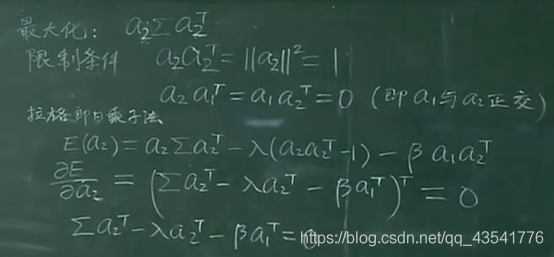 最大化: a₂Σa₂ᵀ
限制条件 a₂a₂ᵀ=||a₂||²=1
a₂a₁ᵀ=a₁a₂ᵀ=0 (即a₁与a₂正交)
拉格郎日乘子法
E(a₂)=a₂Σa₂ᵀ-λ(a₂a₂ᵀ-1)-βa₁a₂ᵀ
∂E/∂a₂=(Σa₂ᵀ-λa₂ᵀ-βa₁ᵀ)ᵀ=0
Σa₂ᵀ-λa₂ᵀ-βa₁ᵀ=0
https://blog.csdn.net/qq_43541776